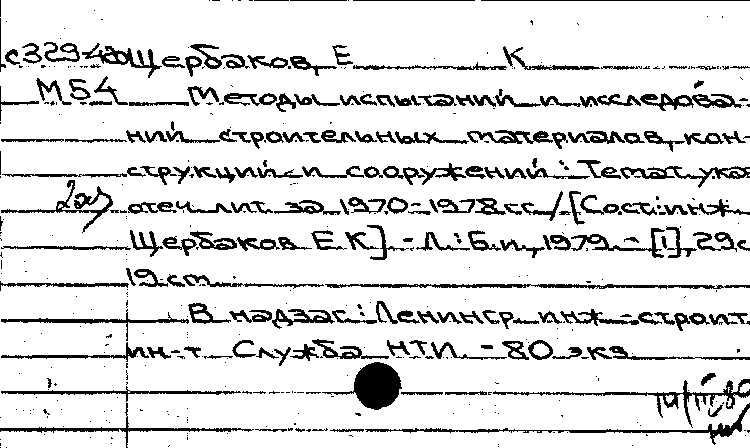 Щербаков, Е К
М54 Методы испытаний и исследова-
ний строительных материалов, кон-
струкций и сооружений : Темат. указ
2аз отеч лит за 1970-1978гг / [Сост: инж
Щербаков Е.К]. - Л. : Б.и., 1979. - [1], 29с
19 cm
В надзаг: Ленингр инж -строит
ин-т Служба НТИ. - 80 экз